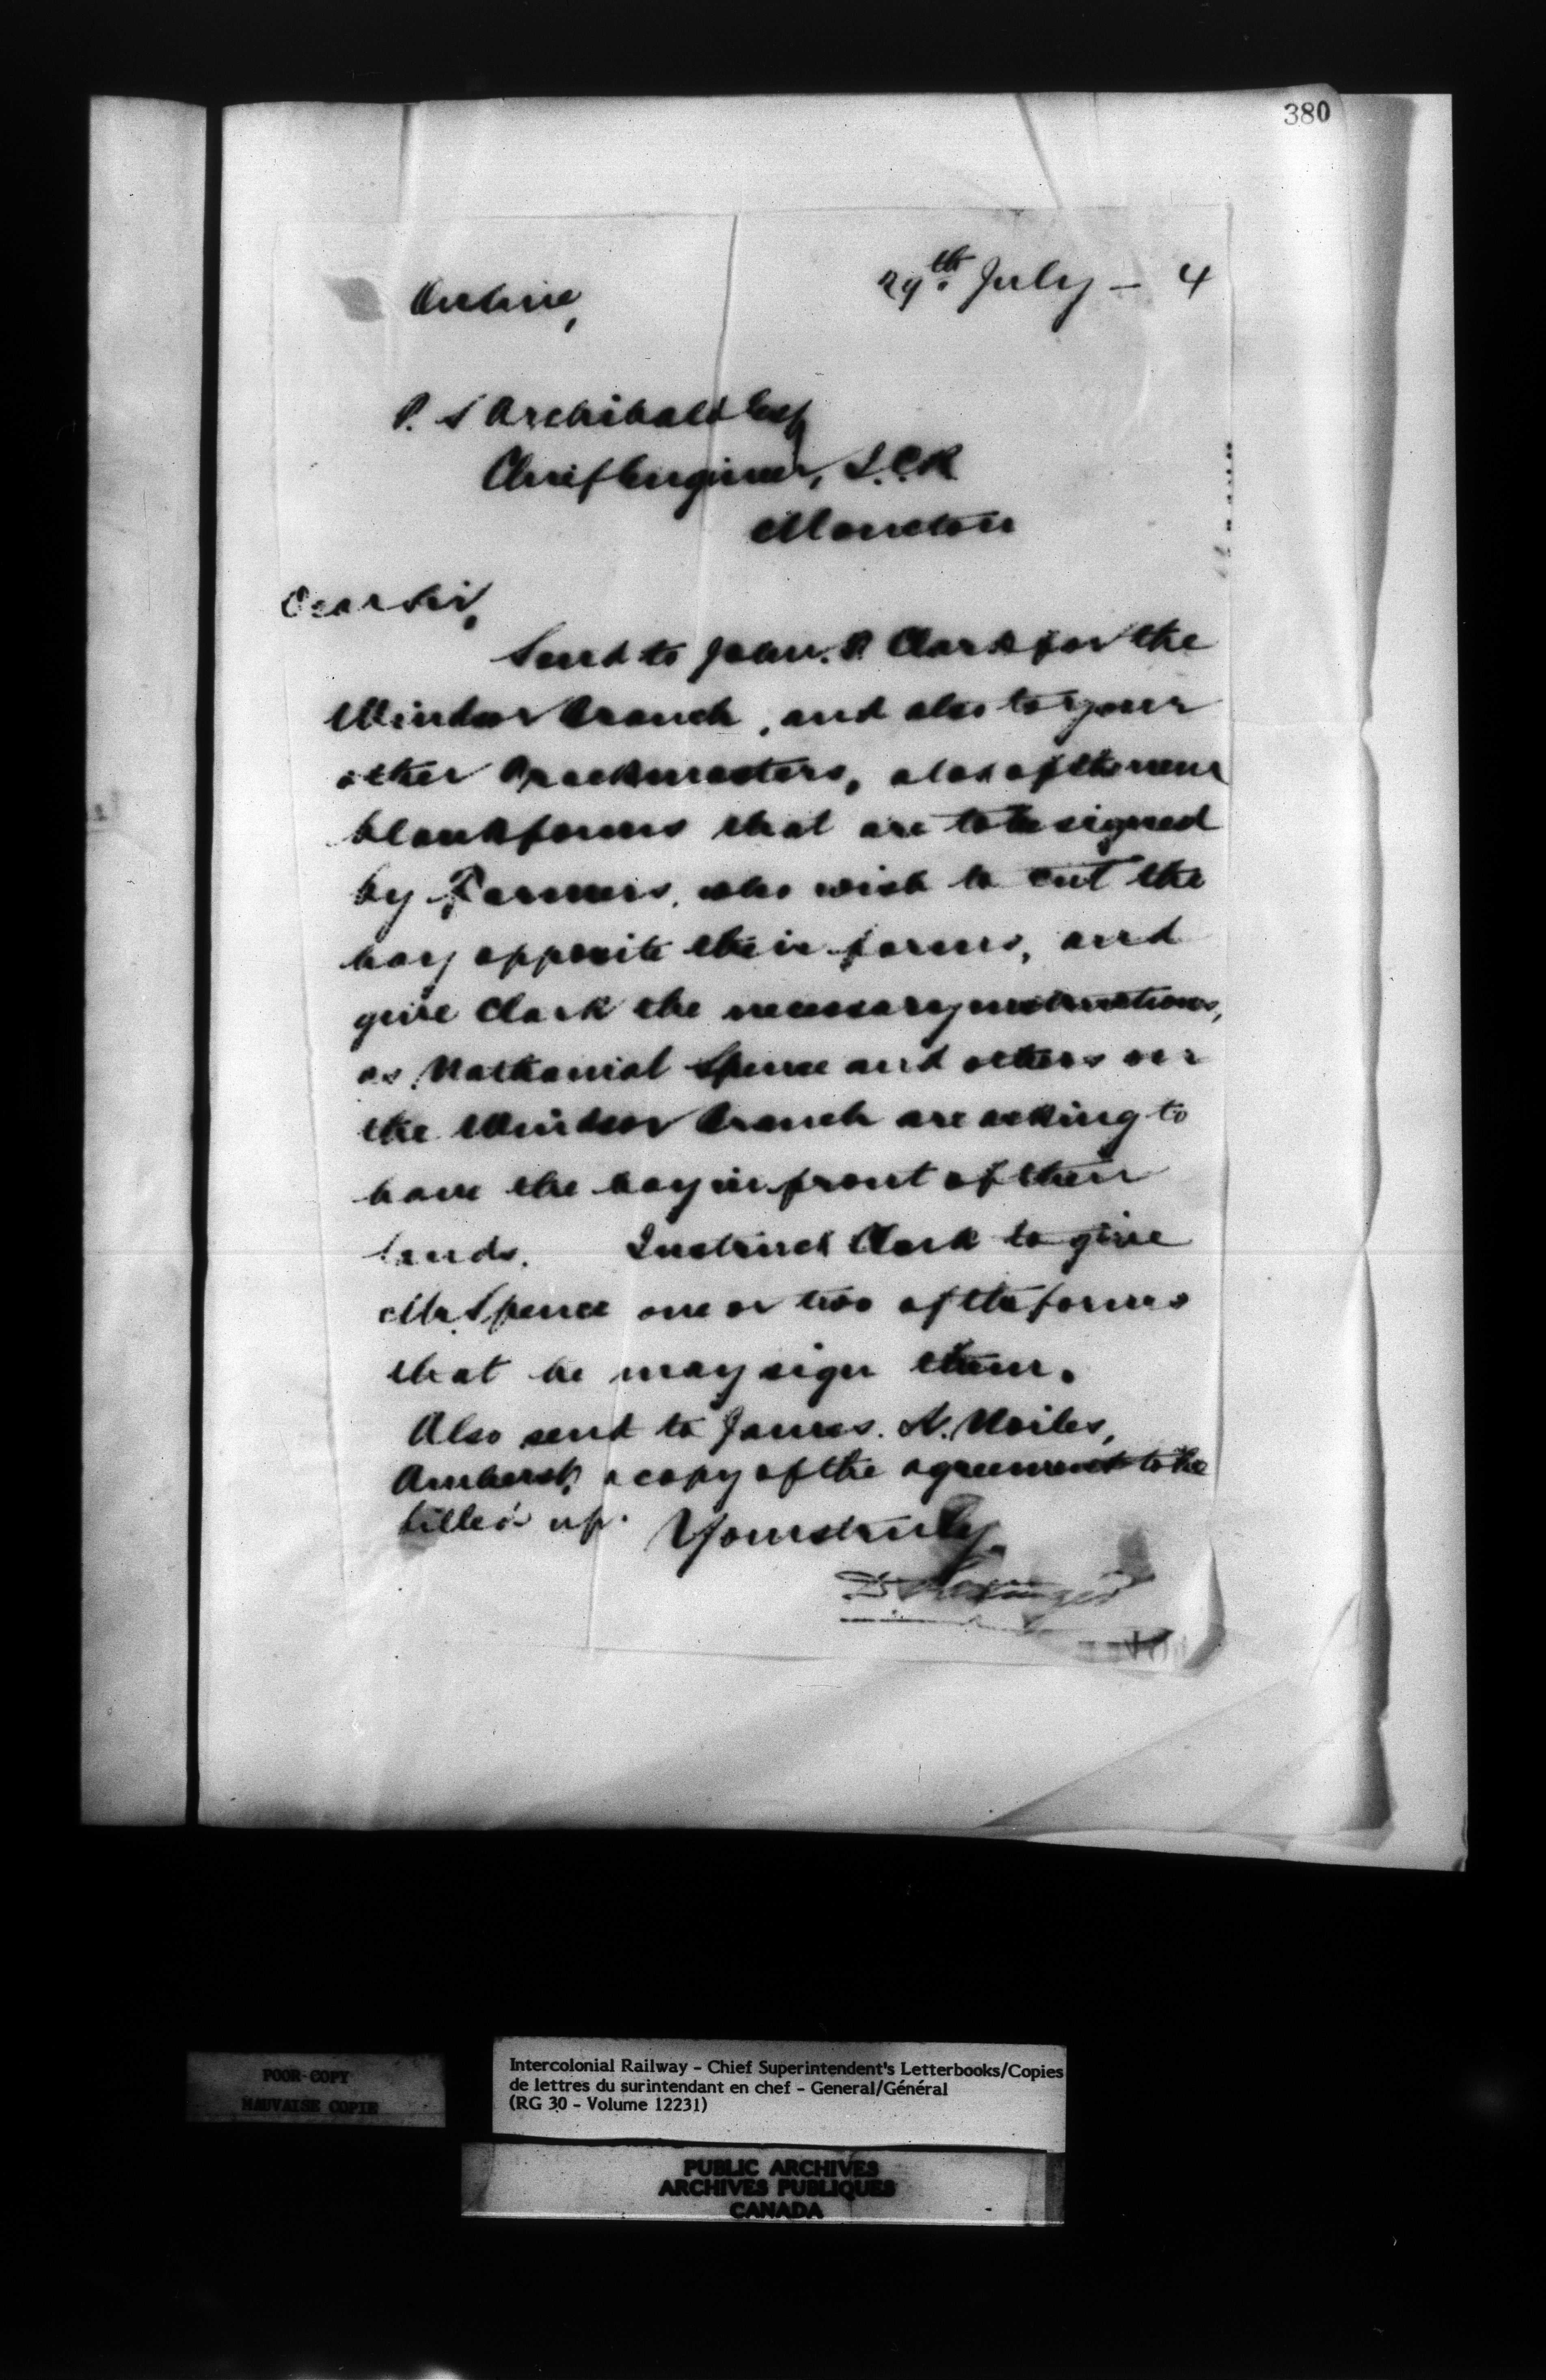 380
29th. July - 4
P. S Archibald Esq
Chief Engineer, I.C.R
Moncton
Dear Sir,
Send to John. R Clark for the
Windsor Branch, and also to your
other Trackmasters, also of the new
blank forms that are to be signed
by Farmers, who wish to cut the
hay opposite their farms, and
give Clark the necessary instructions,
as Nathanial Spence and others on
the Windsor Branch are asking to
have the hay in front of their
lands. Instruct Clark to give
Mr. Spence one or two of the forms
that he may sign them.
Also send to James. N.
Amherst, a copy of the agreement to be
filled up. Yours truly
D Pottinger
POOR COPY
MAUVAISE COPIE
Intercolonial Railway - Chief Superintendent's Letterbooks/Copies
de lettres du surintendant en chef - General/Général
(RG 30 - Volume 12231)
PUBLIC ARCHIVES
ARCHIVES PUBLIQUES
CANADA